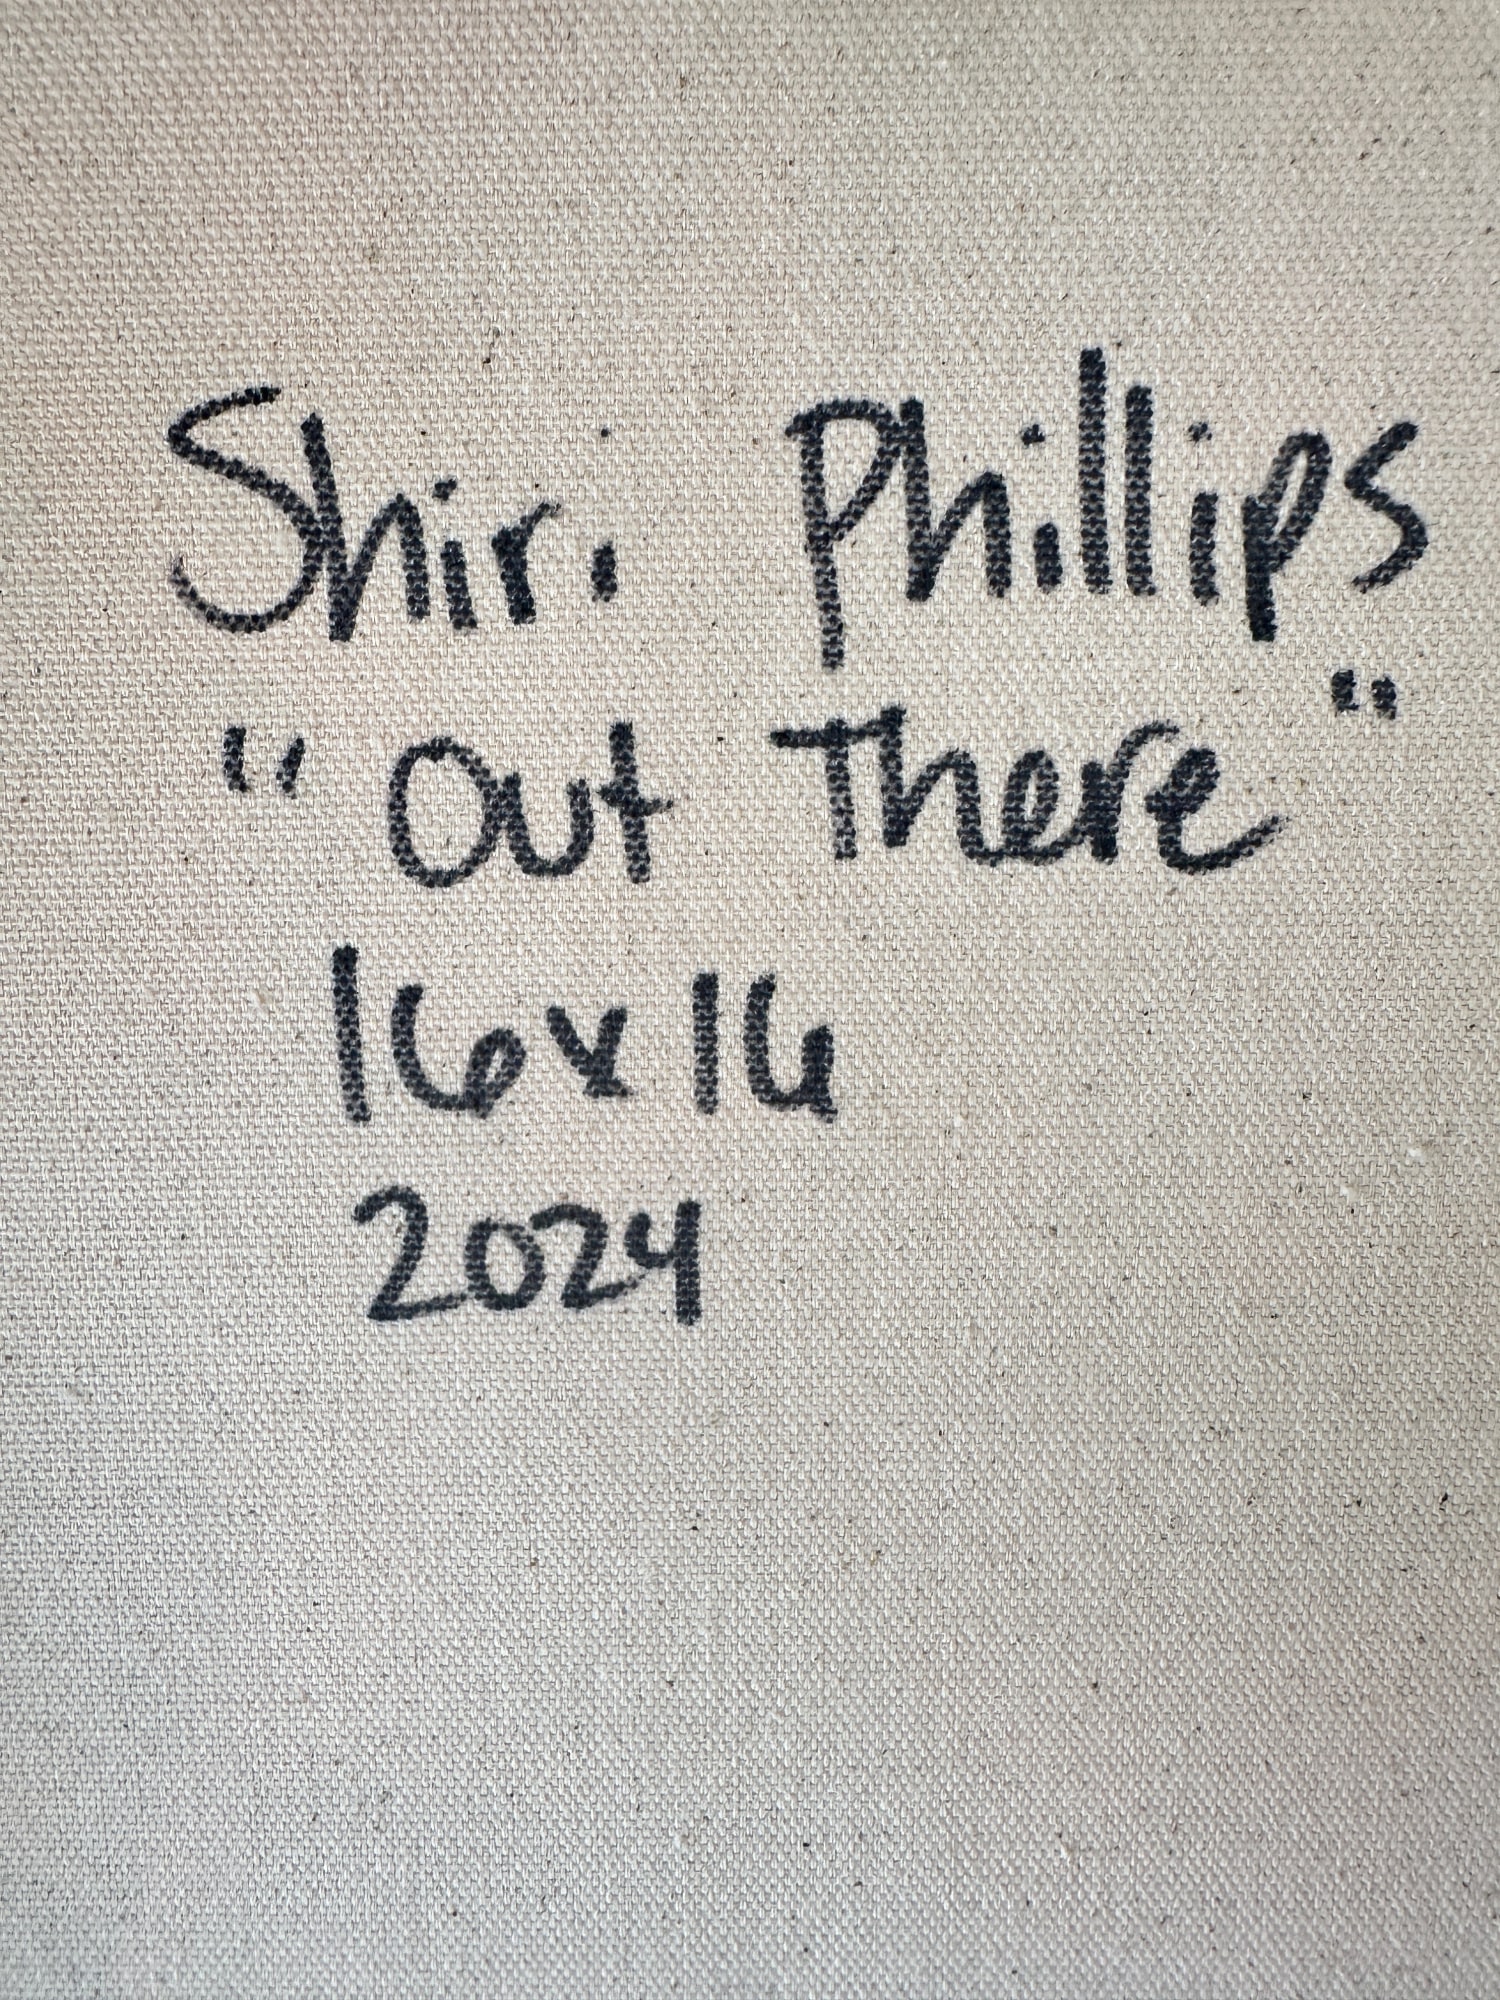 Shiri Phillips
"Out There"
16x16
2024